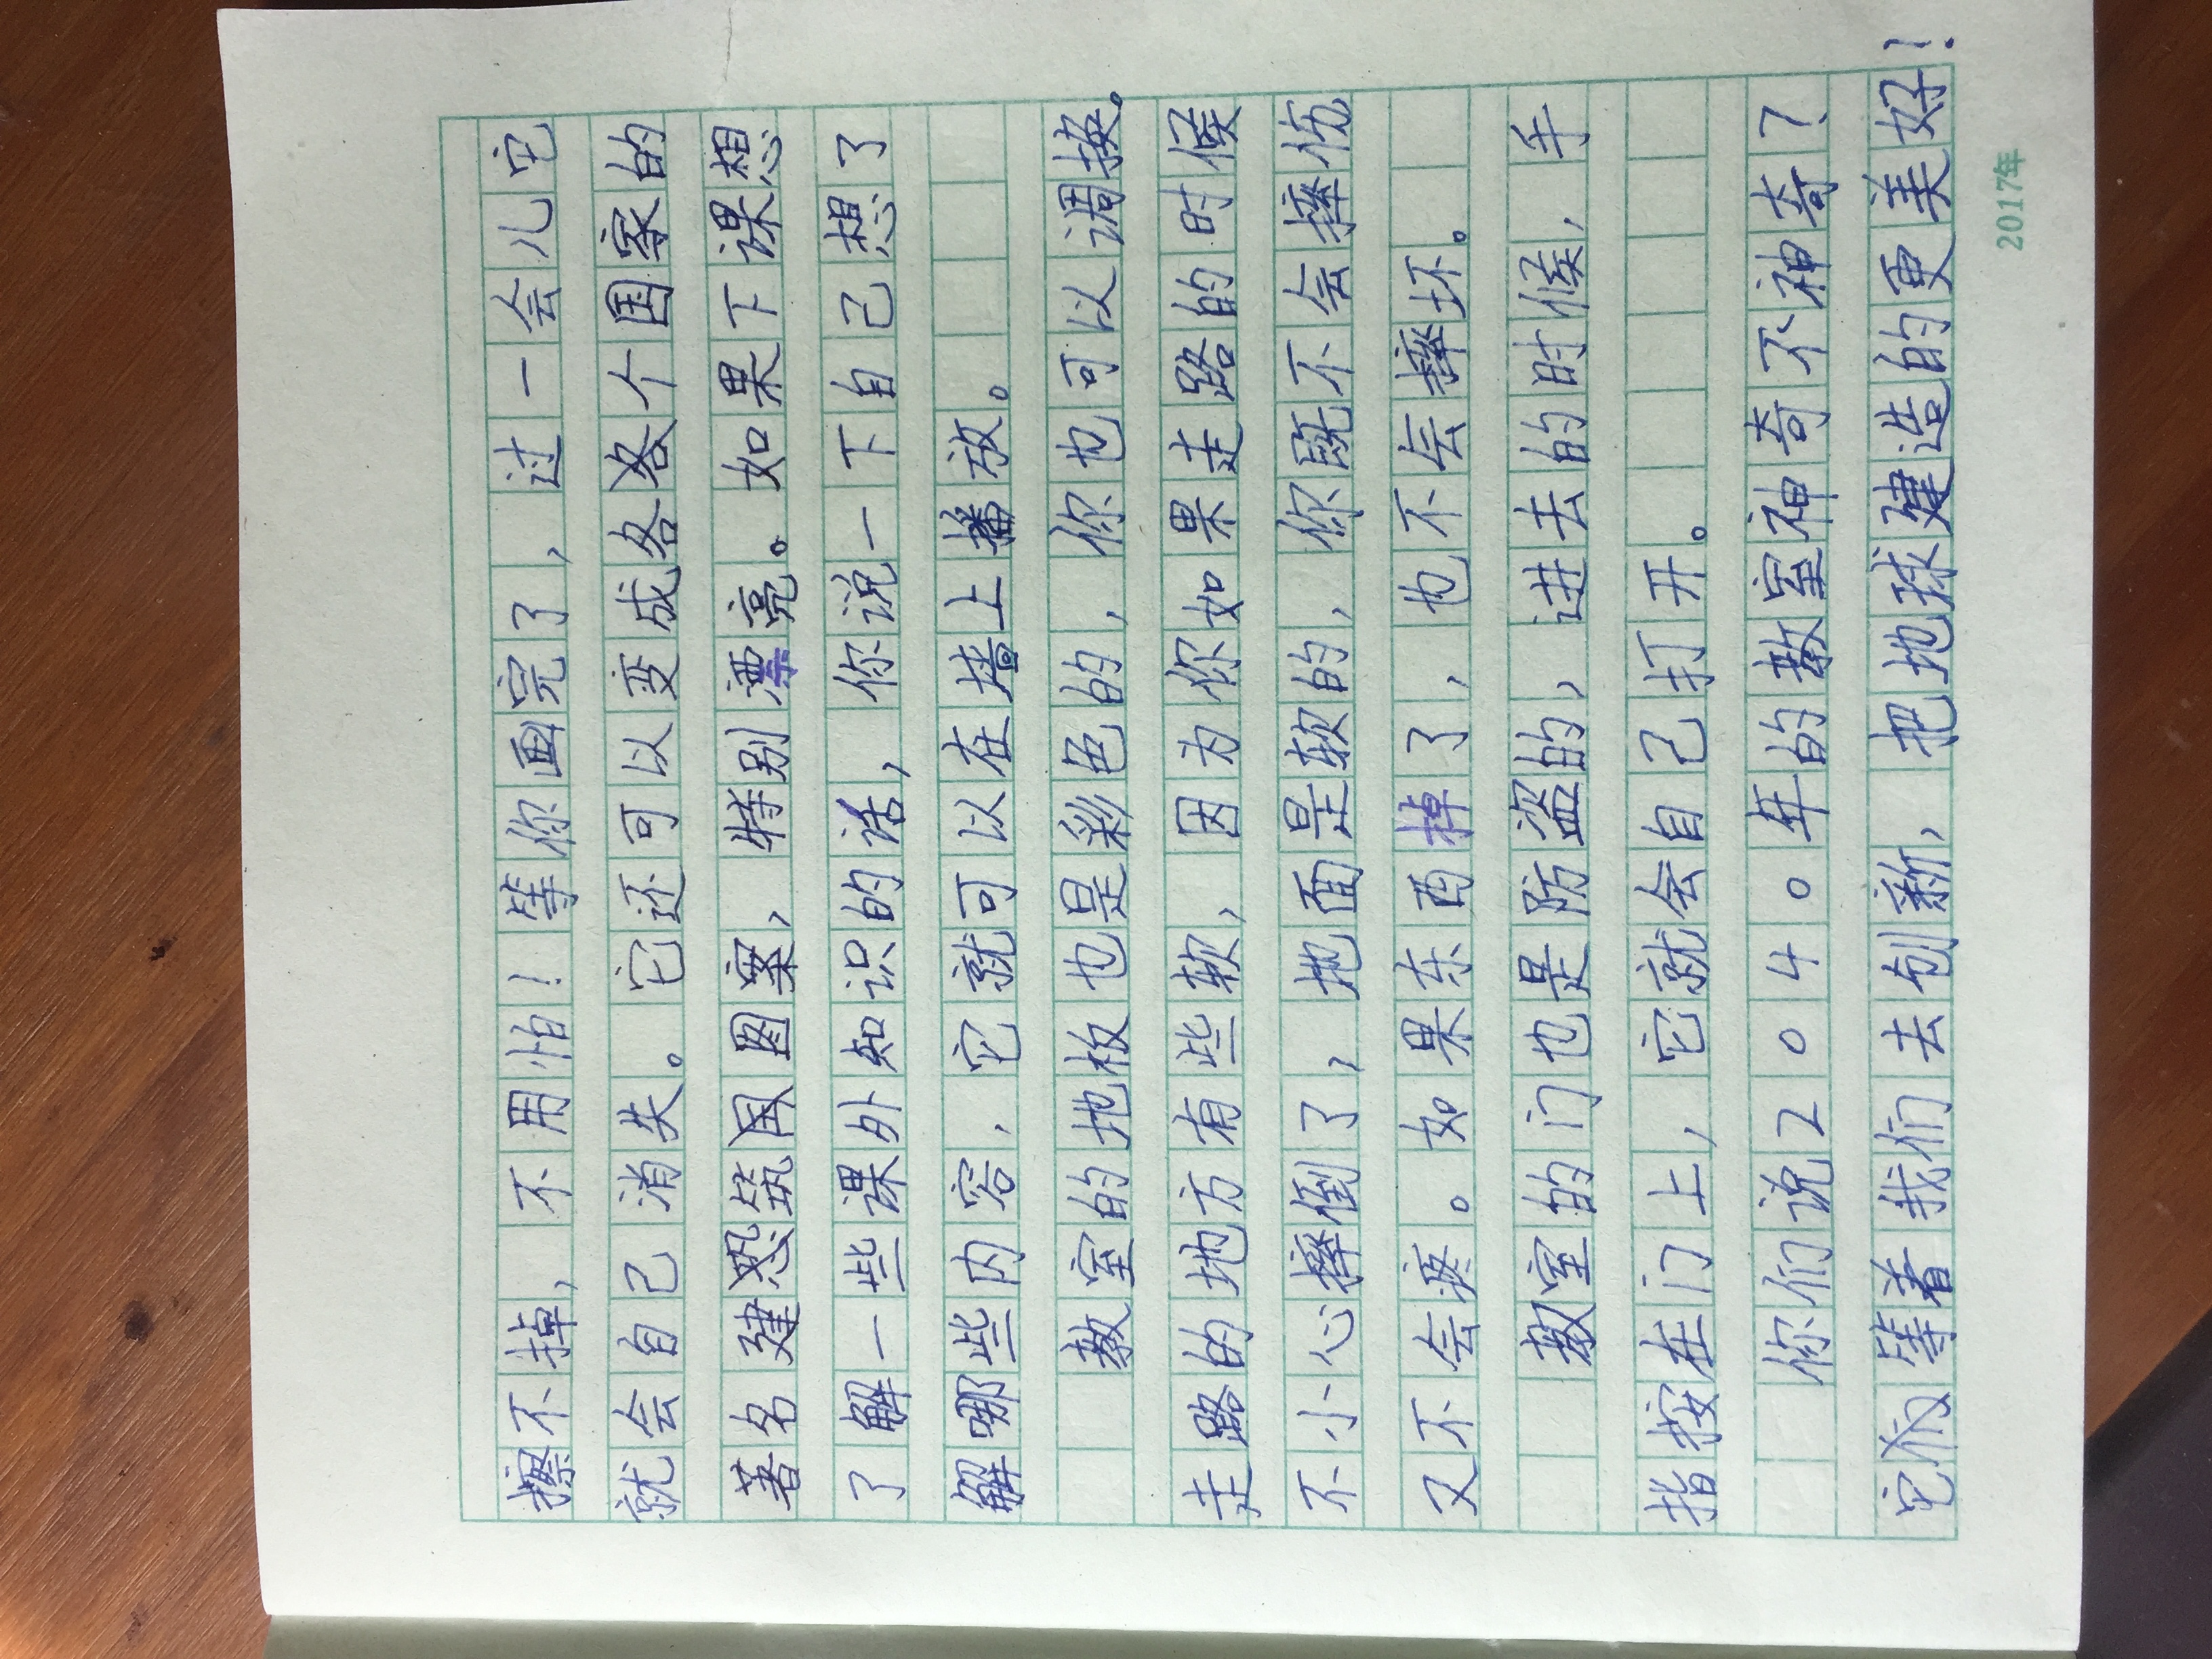 擦不掉，不用怕！等你画完了，过一会儿它
就会自己消失。它还可以变成各各个国家的
著名建恐筑国图案，特别漂亮。如果下课想
了解一些课外知识的话，你说一下自己想了
解哪些内容，它就可以在墙上播放。
教室的地板也是彩色的，你也可以调换。
走路的地方有些软，因为你如果走路的时候
不小心摔倒了，地面是软的，你既不会摔伤
又不会疼。如果东西掉了，也不会摔坏。
教室的门也是防盗的，进去的时候，手
指按在门上，它就会自己打开。
你们说2040年的教室神奇不神奇？
它等着我们去创新，把地球建造的更美好！
2017年